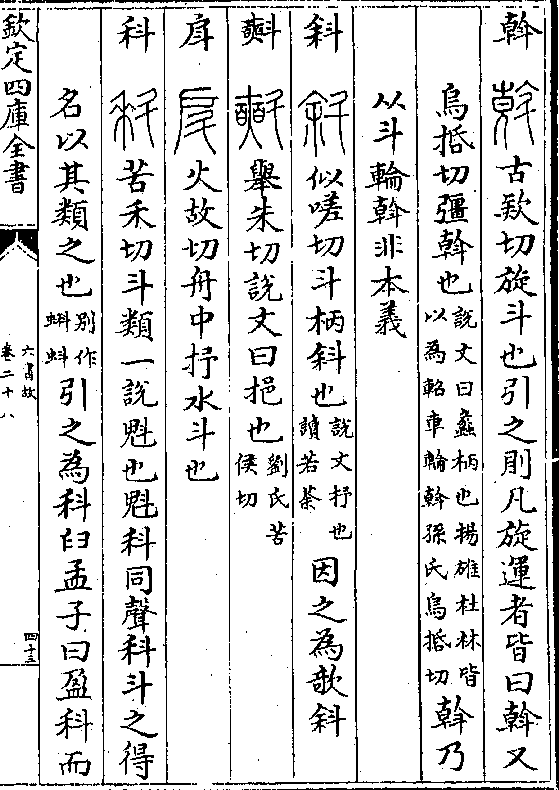 斡 古欵切旋斗也引之則凡旋運者皆曰斡又
烏括切彊斡也說文曰蠡柄也揚雄杜林皆以為軺車輪斡孫氏烏括切斡乃
从斗輪斡非本義
斜 似嗟切斗柄斜也說文抒也讀若荼因之為欹斜
㪺 舉朱切說文曰挹也劉氏苦侯切
戽 火故切舟中抒水斗也
科 苦禾切斗類一說魁也魁科同聲科斗之得
名以其類之也別作蝌蚪引之為科臼孟子曰盈科而
欽定四庫全書
六書故
卷二十八
四十三